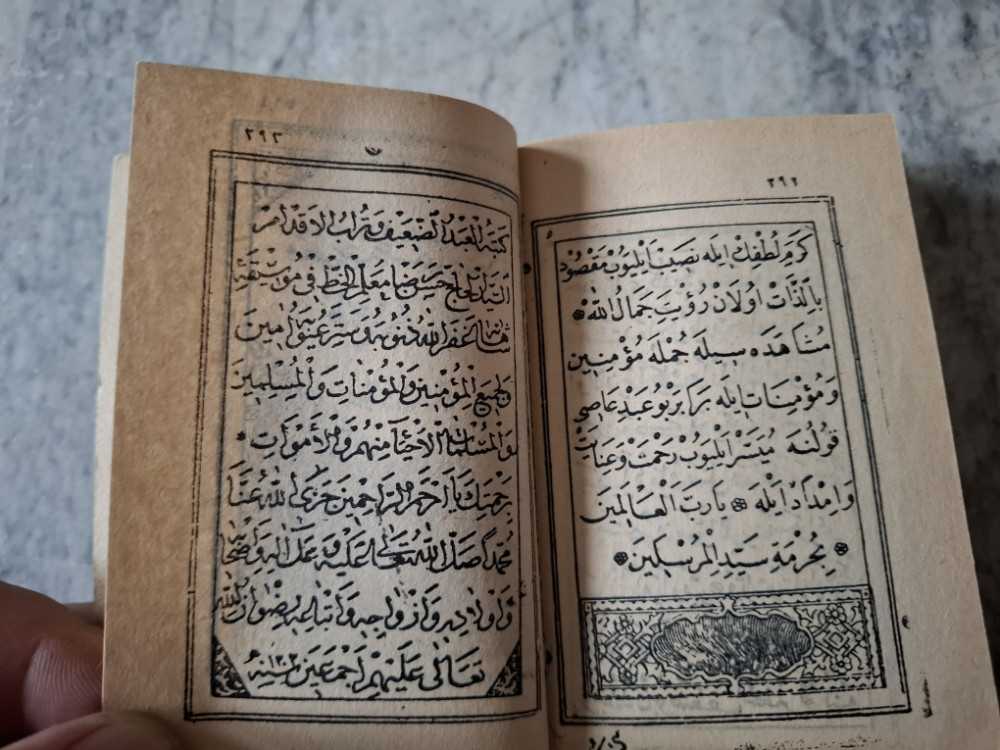 ٢٩٢
كرم لطفك ايله نصيب ايليوب مقصود
بالذات اولان رؤيت جمال الله
مشاهده سيله جمله مؤمنين
ومؤمنات ايله برابر بو عبد عاصى
قولنه ميسر ايليوب رحمت وعنايت
وامداد ايله يارب العالمين
بحرمة سيد المرسلين
٢٩٣
كتبه العبد الضعيف وتراب الاقدام
السيد الحاج حسن رضا معلم الخط فى موسيقه
شاهانه غفر الله ذنوبه وستر عيوبه آمين
ولجميع المؤمنين والمؤمنات والمسلمين
والمسلمات الاحياء منهم والاموات
برحمتك يا ارحم الراحمين جزى الله عنا
محمدا صلى الله تعالى عليه وعلى اله واصحابه
واولاده وازواجه واتباعه رضوان الله
تعالى عليهم اجمعين